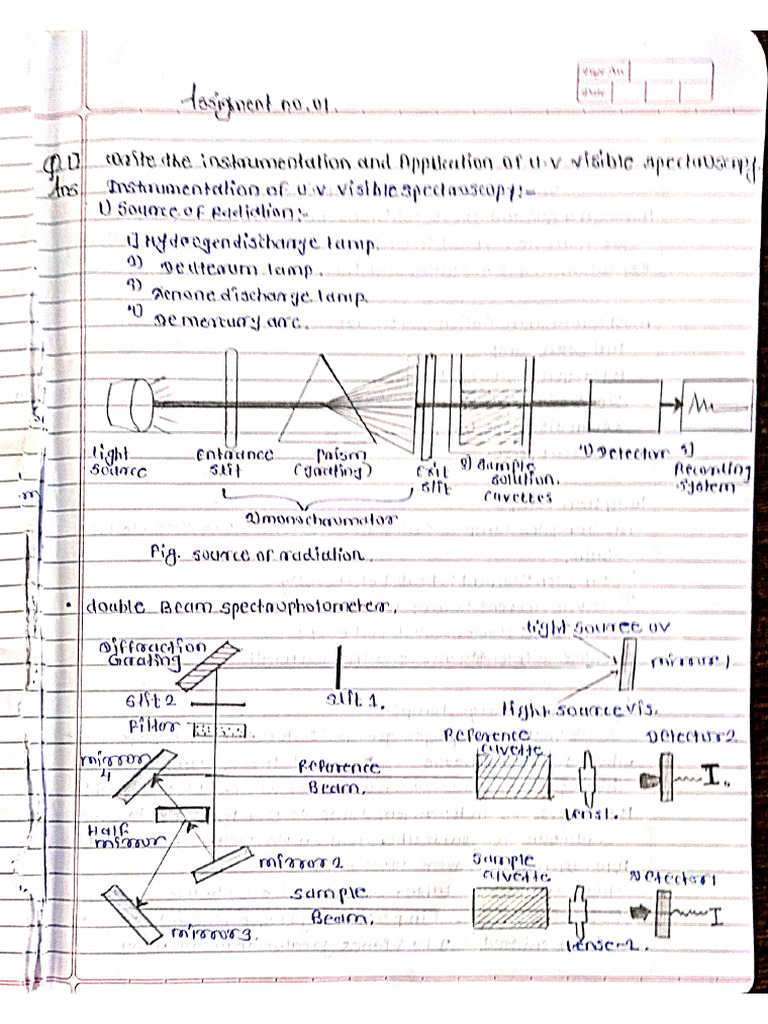 Assigment no.01.
Q.1] Write the instrumentation and Application of U.V visible spectroscopy.
Ans Instrumentation of U.V visible spectroscopy:-
1) Source of Radiation:-
1] Hydrogen discharge lamp.
2) Deuterum lamp.
3) Xenone discharge lamp.
4) De mercury arc.
light source
Entrance slit
Prism (grating)
Exit slit
3) Sample solution. cuvettes
4) Detector
5) Recording system
2) monochromator
Fig. source of radiation.
• double Beam spectrophotometer.
light source UV
Diffraction Grating
mirror 1
Slit 2
Slit 1.
light source vis.
Filter
Reference cuvette
Detector 2
mirror 4
Reference Beam.
I.
Lens 1.
Half mirror
mirror 2
Sample cuvette
Detector 1
Sample Beam.
I
mirror 3.
Lense-2.